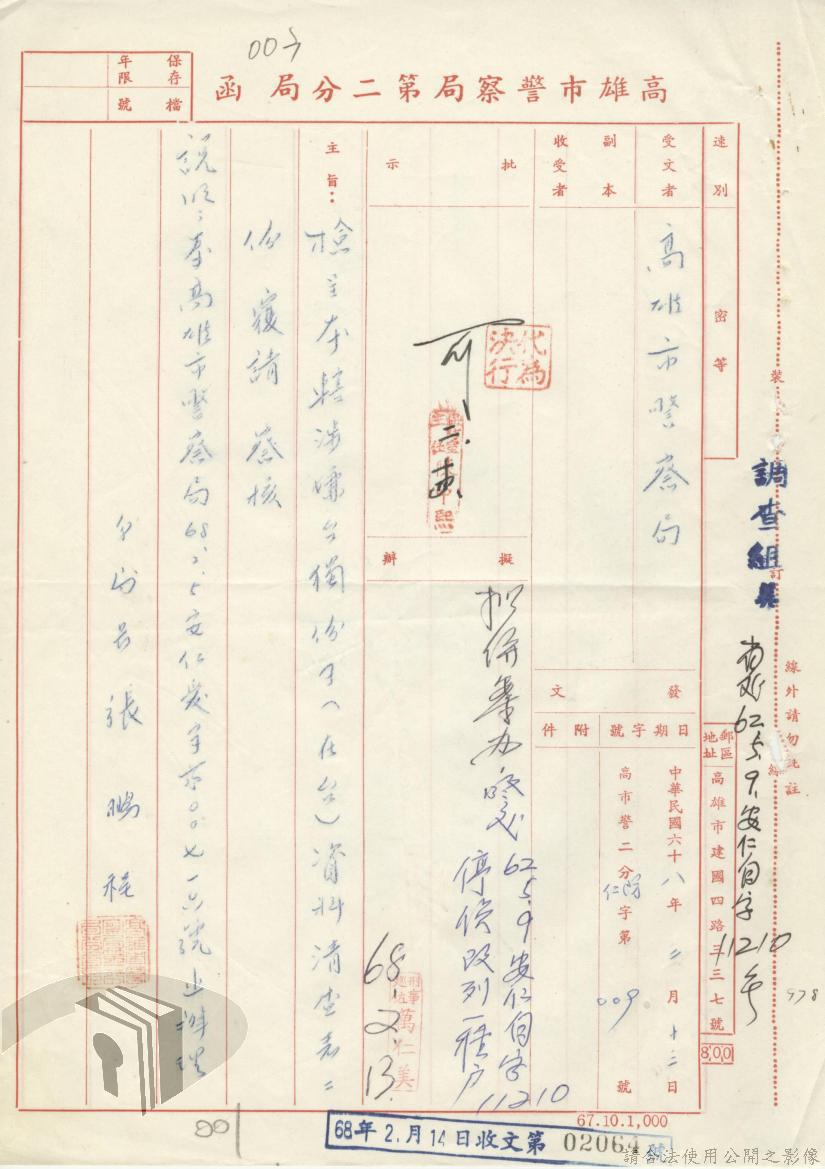 高雄市警察局第二分局 函
保存年限
檔號
速別
密等
受文者
高雄市警察局
副本收受者
發文
日期
中華民國六十八年二月十三日
字號
高市警二分仁防字第009號
附件
郵區地址
高雄市建國四路三三七號
800
批示
代為決行
可
擬辦
62.5.9安仁自字11210
停偵改列一種戶
刑事巡佐 萬仁美
68.2.13
主旨：
檢呈本轄涉嫌台獨份子（在台）資料清查表二
份復請鑒核
說明：奉高雄市警察局68.2.5安仁愛字第00七一六號函辦理
分局長張
調查組
62.5.9.安仁自字
11210号
裝
訂
線
線外請勿批註
978
67.10.1,000
68年2.月14日收文第02064號
請合法使用公開之影像